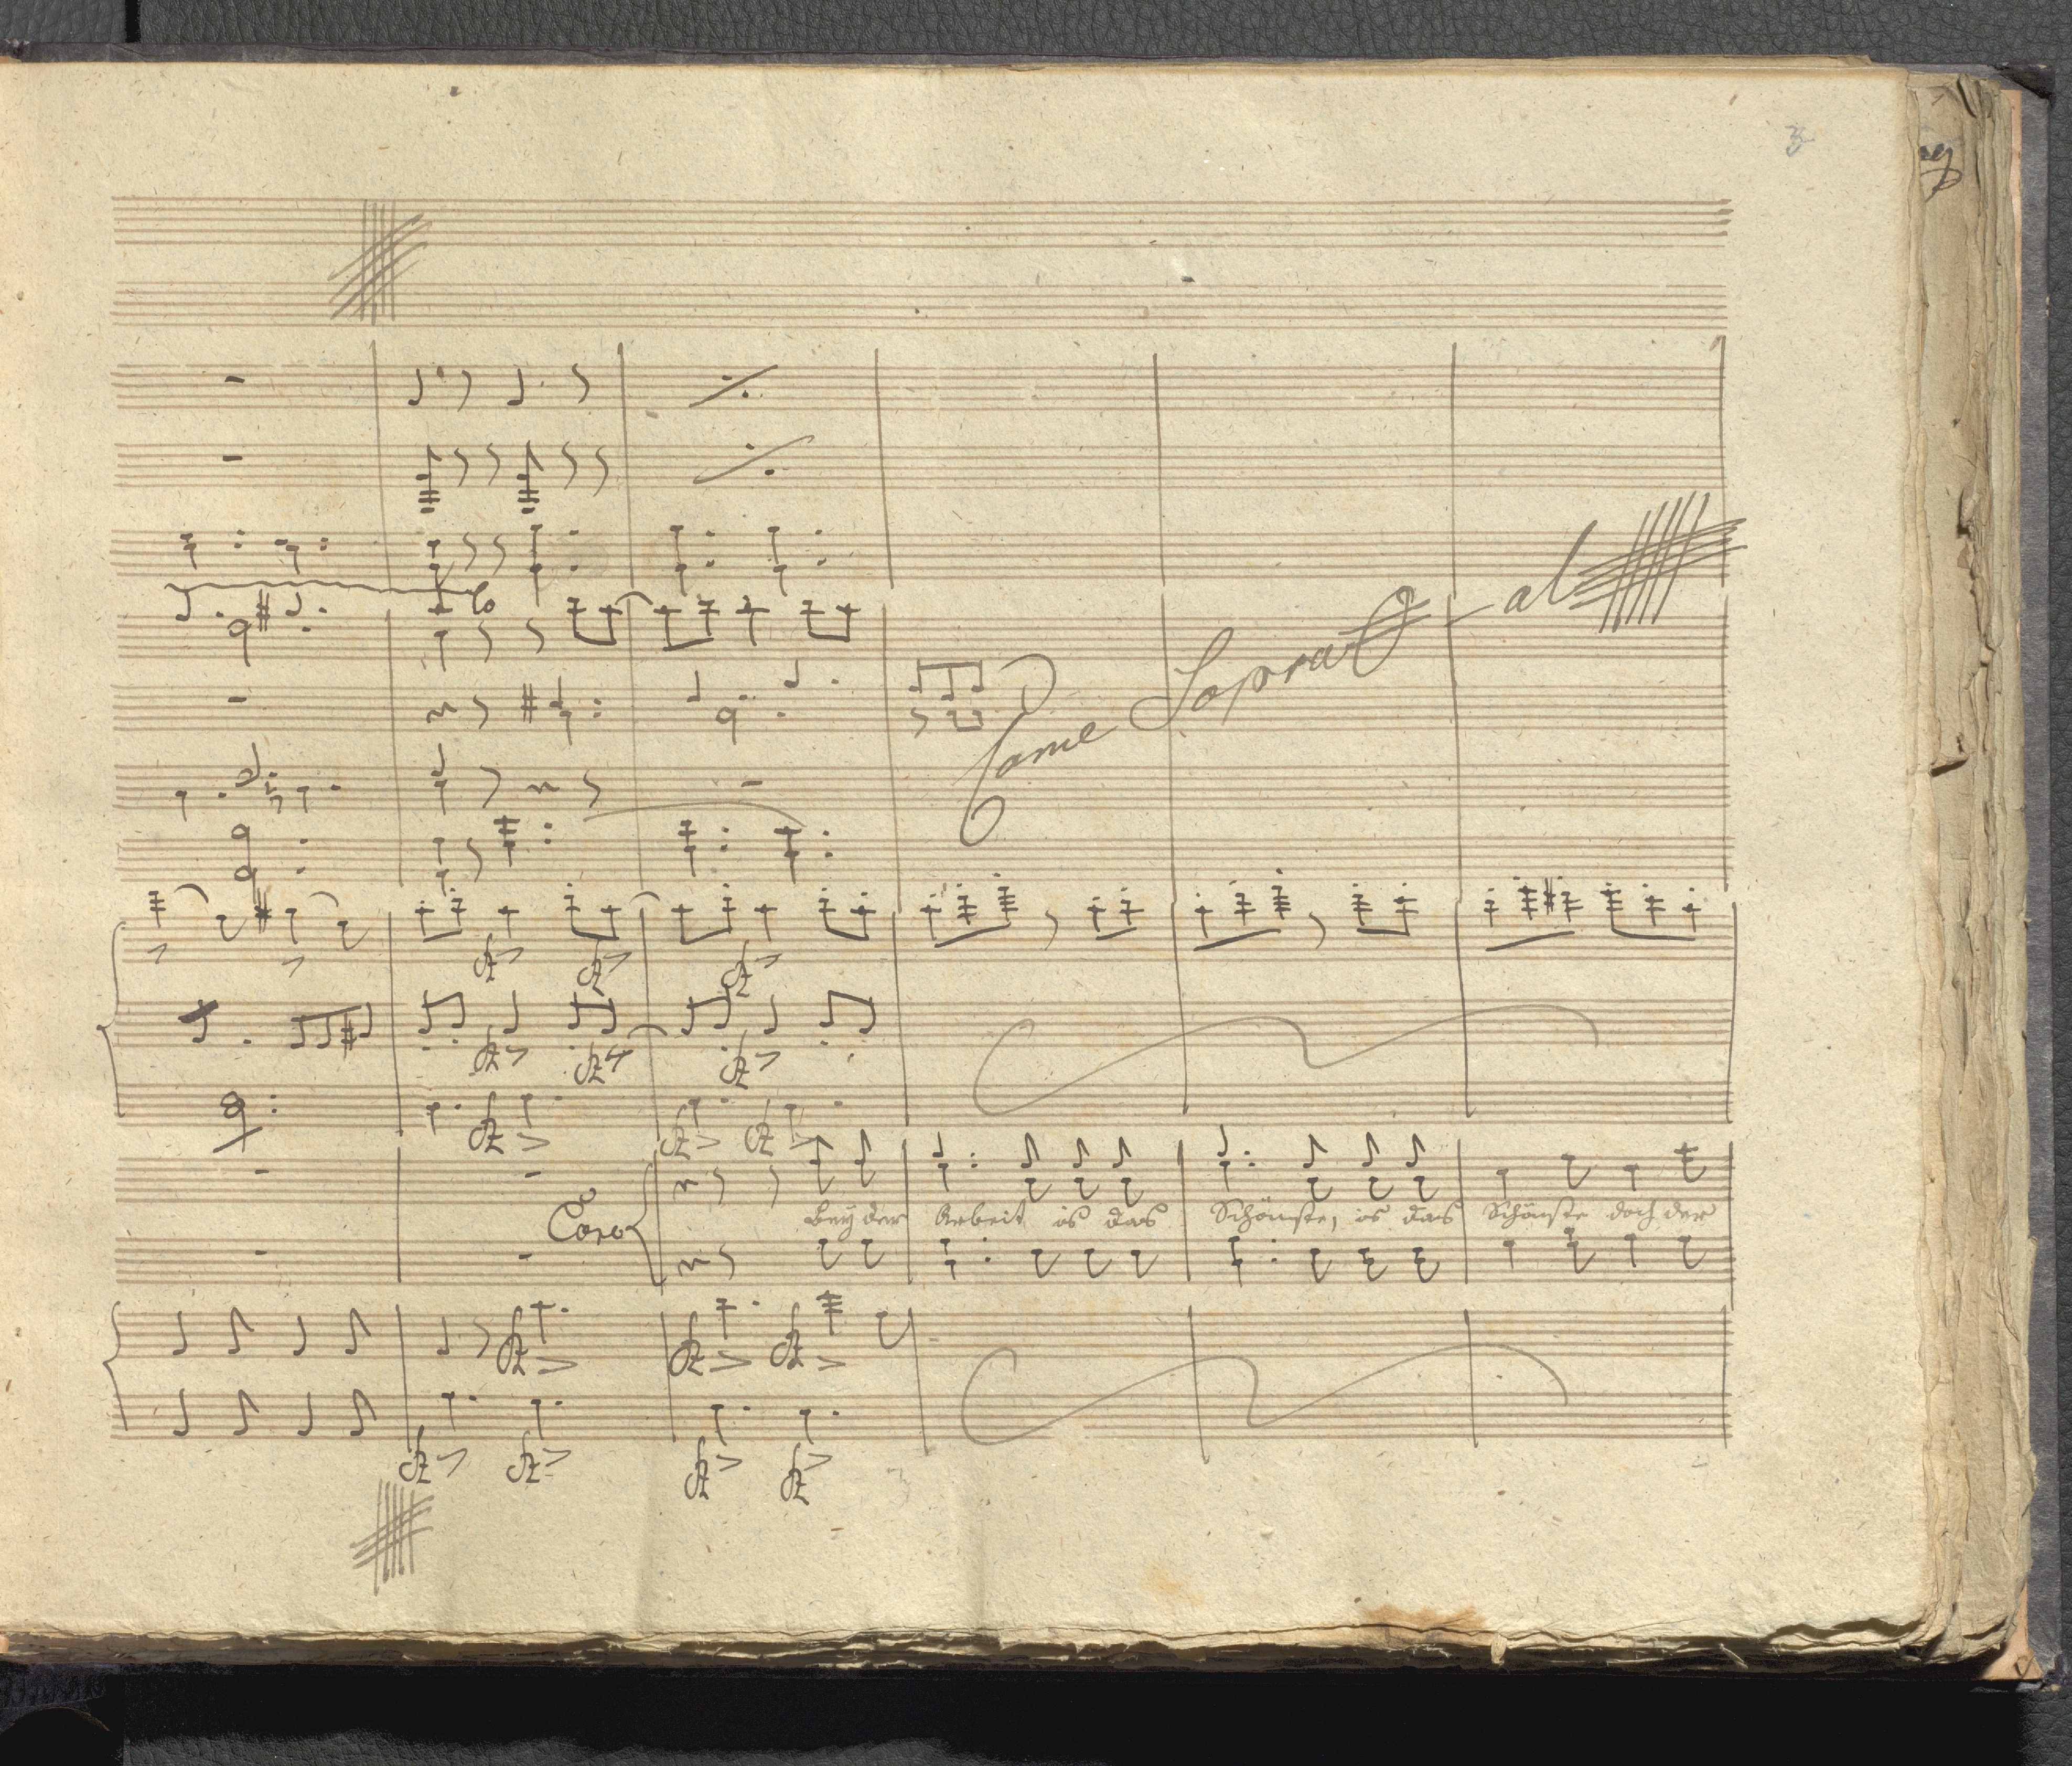 8
Come Sopra al
Coro
Bey der Arbeit is das Schönste, is das Schönste doch der